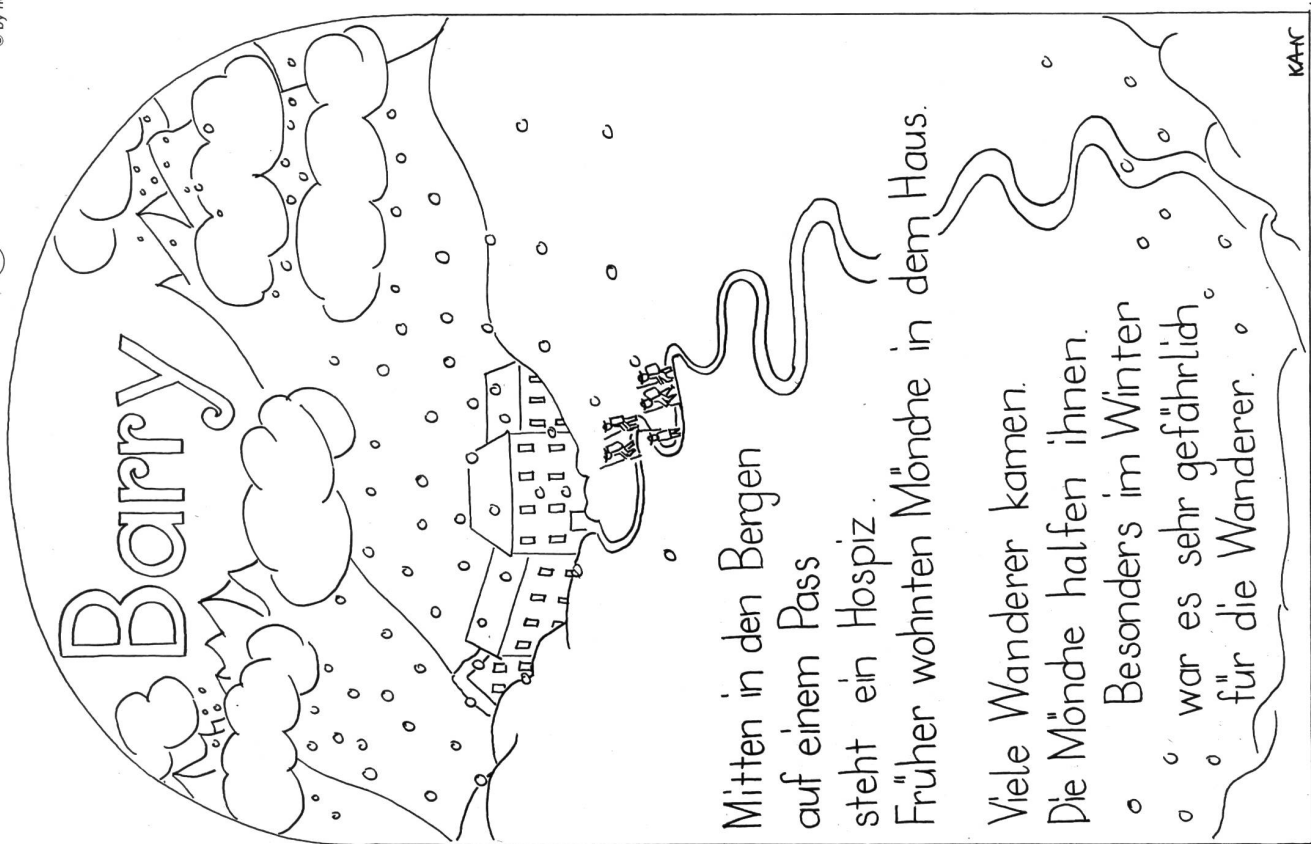 Barry
Mitten in den Bergen
auf einem Pass
steht ein Hospiz.
Früher wohnten Mönche in dem Haus.
Viele Wanderer kamen.
Die Mönche halfen ihnen.
Besonders im Winter
war es sehr gefährlich
für die Wanderer.
KA-N